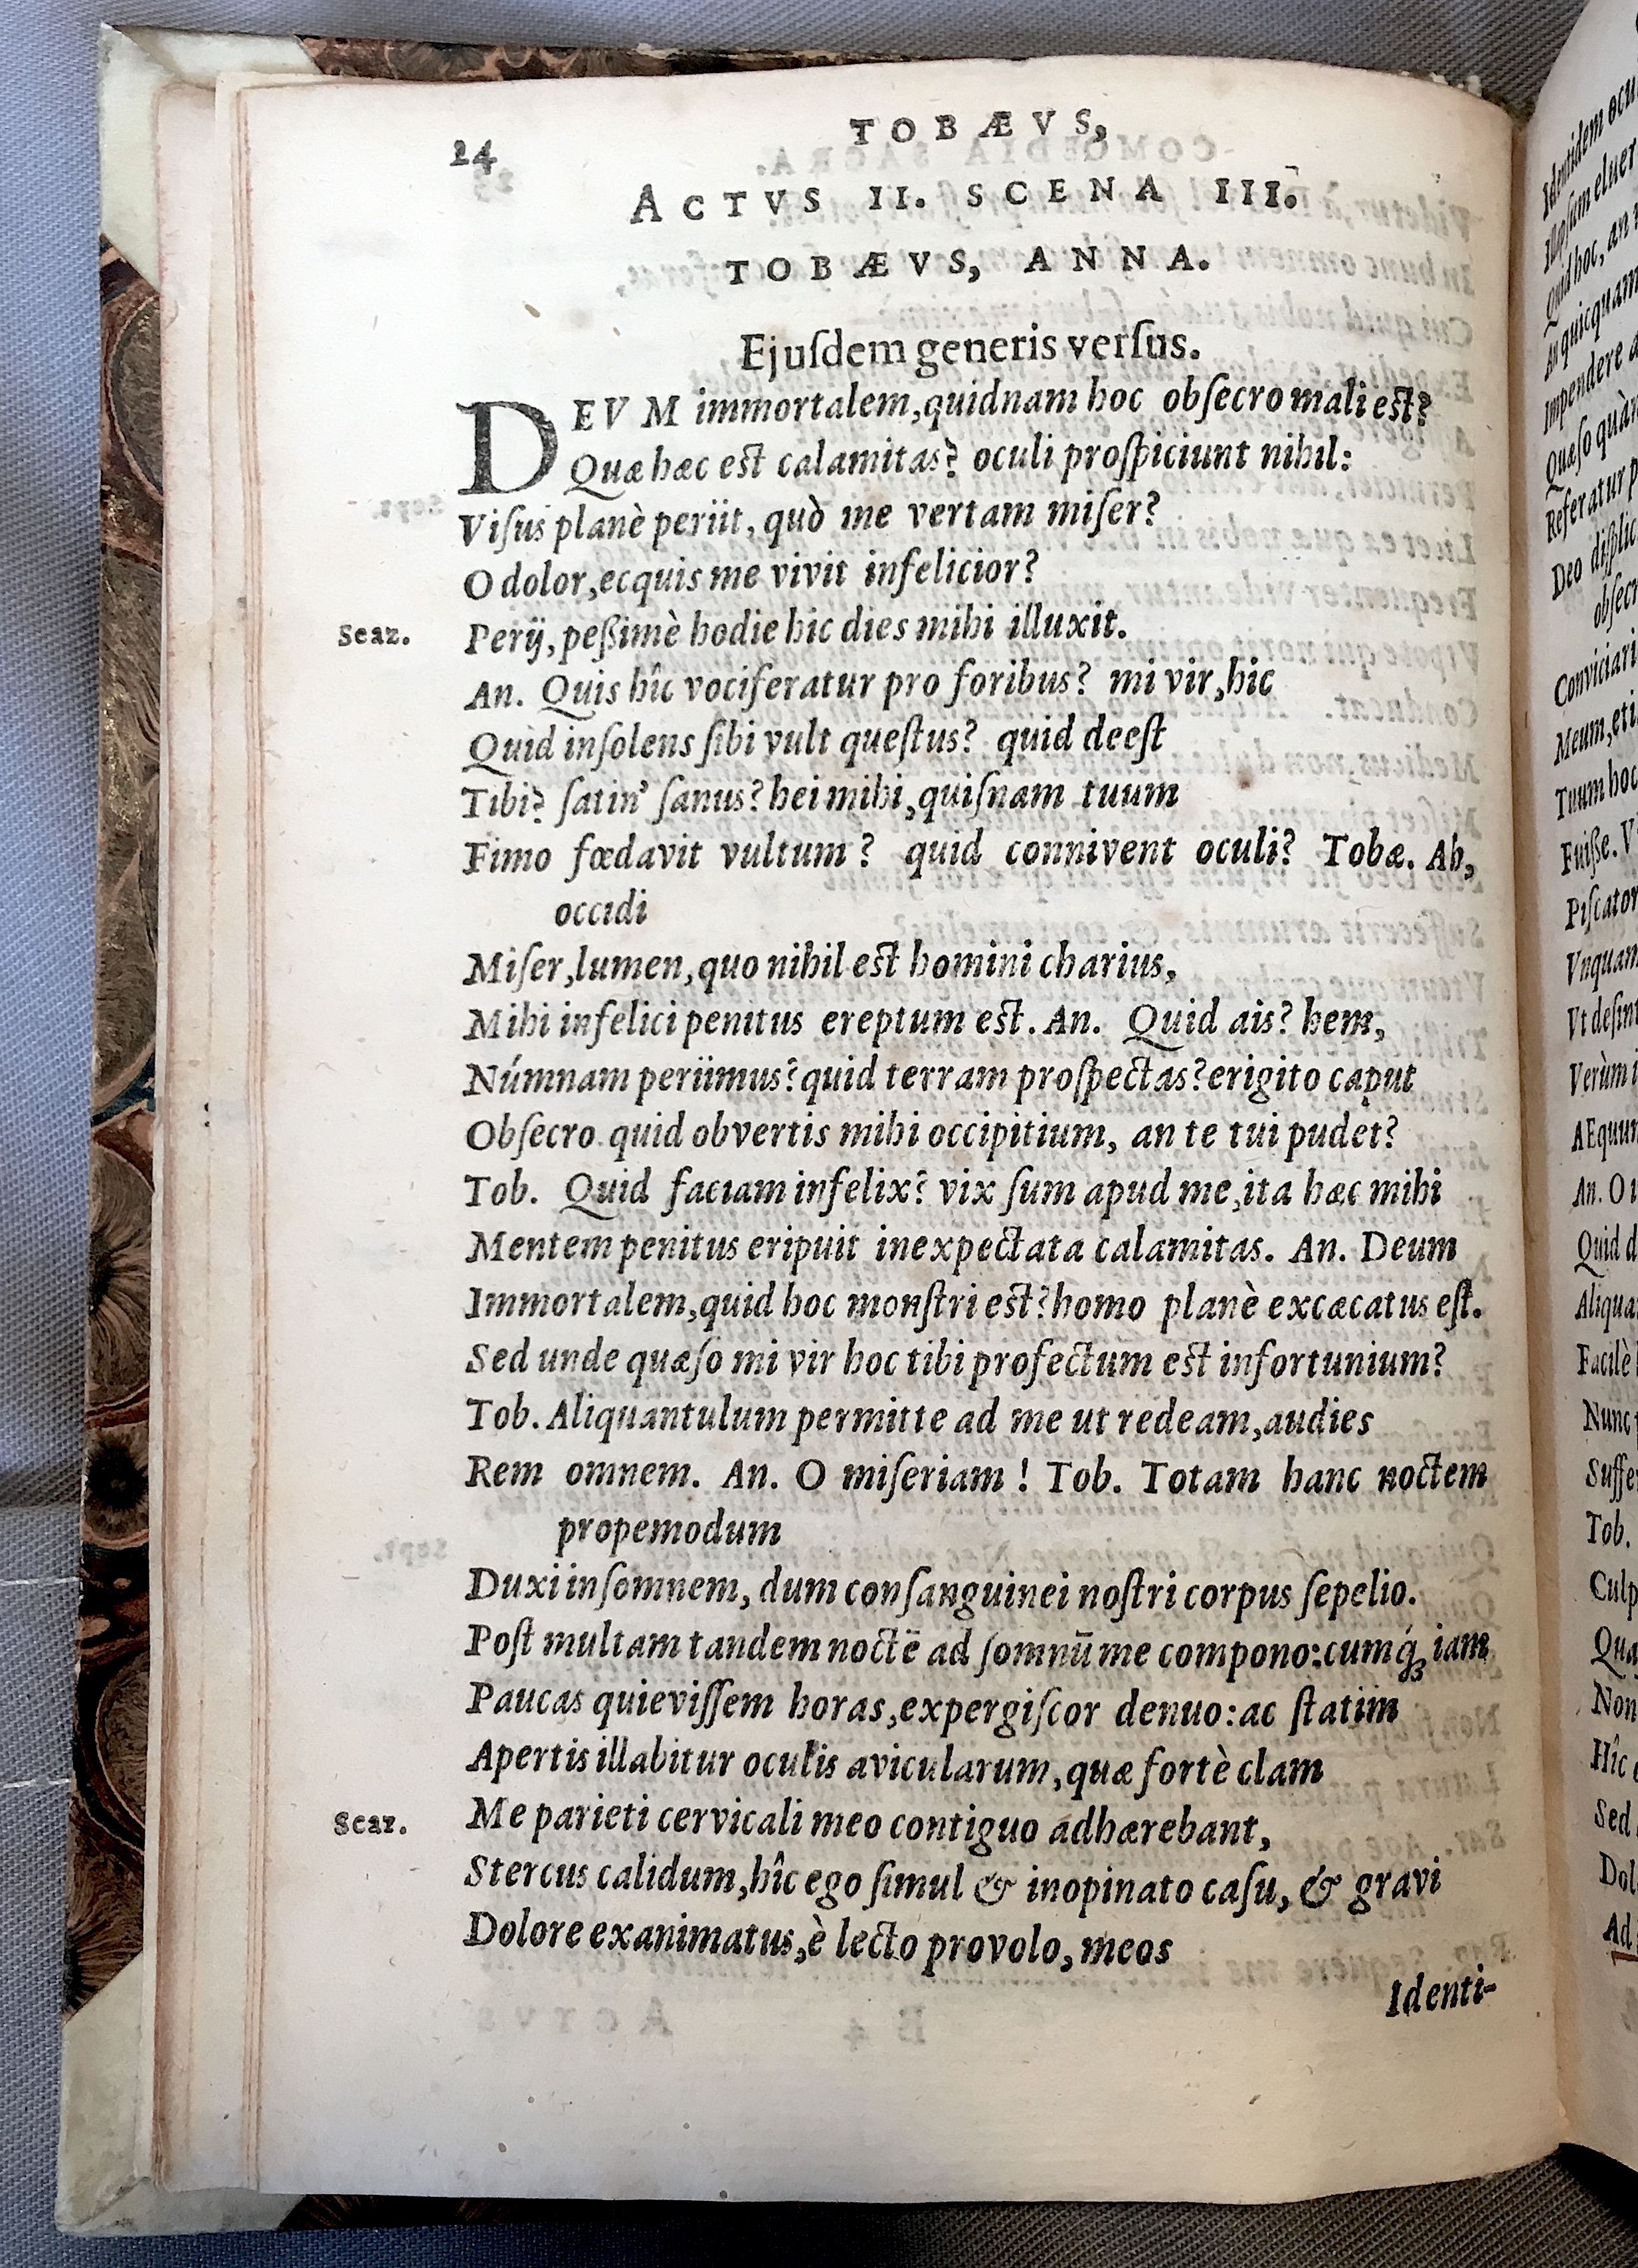 24
TOBÆVS,
ACTVS II. SCENA III.
TOBÆVS, ANNA.
Ejuſdem generis verſus.
DEVM immortalem, quidnam hoc obſecro mali est?
Quæ hæc est calamitas? oculi proſpiciunt nihil:
Viſus planè periit, quò me vertam miſer?
O dolor, ecquis me vivit infelicior?
Scaz. Perij, peßimè hodie hic dies mihi illuxit.
An. Quis hîc vociferatur pro foribus? mi vir, hic
Quid inſolens ſibi vult queſtus? quid deeſt
Tibi? ſatin' ſanus? hei mihi, quiſnam tuum
Fimo fœdavit vultum? quid connivent oculi? Tobæ. Ah,
occidi
Miſer, lumen, quo nihil est homini charius,
Mihi infelici penitus ereptum est. An. Quid ais? hem,
Númnam periimus? quid terram proſpectas? erigito caput
Obſecro quid obvertis mihi occipitium, an te tui pudet?
Tob. Quid faciam infelix? vix ſum apud me, ita hæc mihi
Mentem penitus eripuit inexpectata calamitas. An. Deum
Immortalem, quid hoc monſtri est? homo planè excæcatus eſt.
Sed unde quæſo mi vir hoc tibi profectum est infortunium?
Tob. Aliquantulum permitte ad me ut redeam, audies
Rem omnem. An. O miſeriam! Tob. Totam hanc noctem
propemodum
Duxi inſomnem, dum conſanguinei noſtri corpus ſepelio.
Poſt multam tandem noctē ad ſomnū me compono: cumq́ꝫ iam
Paucas quieviſſem horas, expergiſcor denuo: ac ſtatim
Apertis illabitur oculis avicularum, quæ fortè clam
Scaz. Me parieti cervicali meo contiguo adhærebant,
Stercus calidum, hîc ego ſimul & inopinato caſu, & gravi
Dolore exanimatus, è lecto provolo, meos
Identi-
Identidem ocu
Quid hoc, an
An quicquam
Impendere a
Quæſo quàm
Referatur p
Deo diſplic
obſecr
Conviciari
Meum, eti
Tuum hoc
Fuiße. V
Piſcator
Vnquam
Vt deſint
Verùm i
AEquum
An. O
Quid d
Aliqua
Facilè
Nunc
Suffe
Tob.
Culp
Qua
Non
Hîc
Sed
Dol
Ad